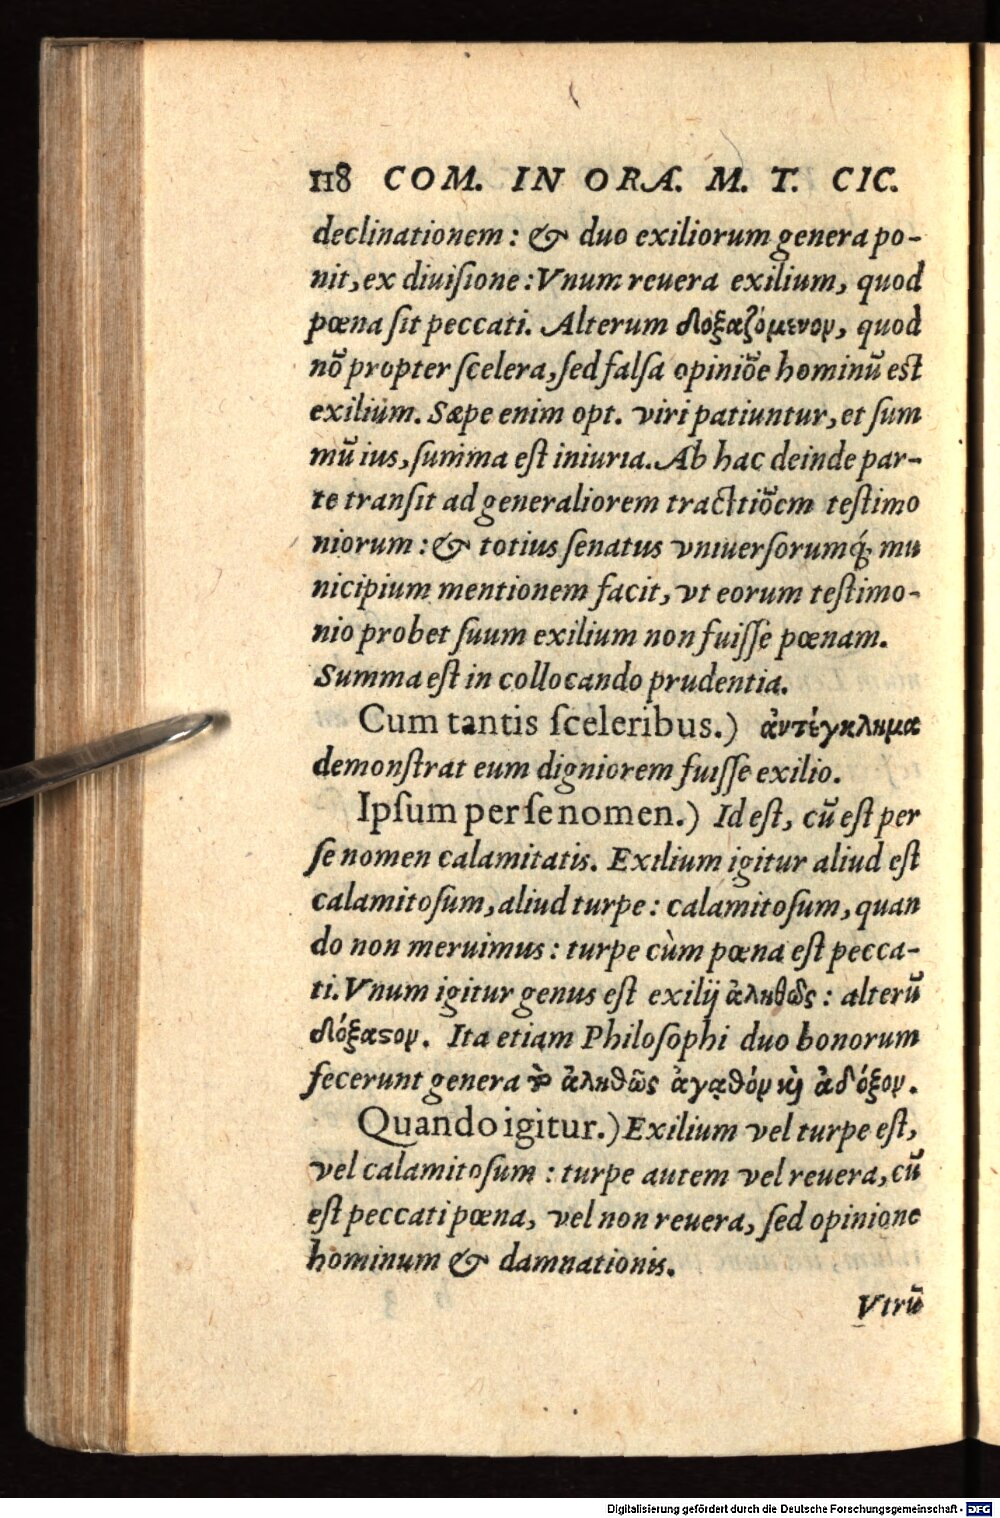 118 COM. IN ORA. M. T. CIC.
declinationem: & duo exiliorum genera po-
nit, ex diuiſione: Vnum reuera exilium, quod
pœna ſit peccati. Alterum δοξαζόμενον, quod
nō propter ſcelera, ſed falſa opiniōe hominū eſt
exilium. Sæpe enim opt. viri patiuntur, et ſum
mū ius, ſumma eſt iniuria. Ab hac deinde par-
te tranſit ad generaliorem tracttiōem teſtimo
niorum: & totius ſenatus vniuerſorumq́; mu
nicipium mentionem facit, vt eorum teſtimo-
nio probet ſuum exilium non fuiſſe pœnam.
Summa eſt in collocando prudentia.
Cum tantis ſceleribus.) ἀντέγκλημα
demonſtrat eum digniorem fuiſſe exilio.
Ipſum per ſe nomen.) Id eſt, cū eſt per
ſe nomen calamitatis. Exilium igitur aliud eſt
calamitoſum, aliud turpe: calamitoſum, quan
do non meruimus: turpe cùm pœna eſt pecca-
ti. Vnum igitur genus eſt exilij ἀληθῶς: alterū
δόξαςον. Ita etiam Philoſophi duo bonorum
fecerunt genera ἀληθῶς ἀγαθόν καὶ ἀδόξον.
Quando igitur.) Exilium vel turpe eſt,
vel calamitoſum: turpe autem vel reuera, cū
eſt peccati pœna, vel non reuera, ſed opinione
hominum & damnationis.
Vtrū
Digitalisierung gefördert durch die Deutsche Forschungsgemeinschaft - DFG